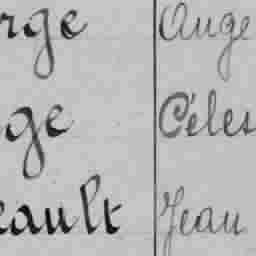 rge Ange
ge Céles
eault Jean